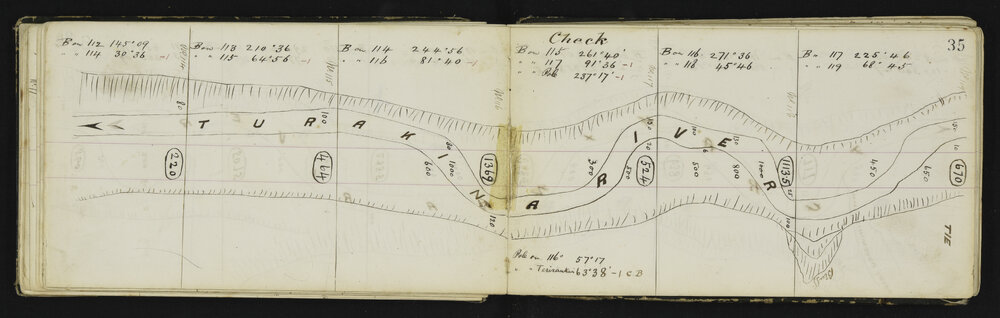 35
Check
B on 112 145°09
" " 114 30°36 -1
B on 113 210°36
" " 115 64°56 -1
B on 114 244°56
" " 116 81°40 -1
B on 115 261°40'
" " 117 91°36 -1
" " Pole 237°17' -1
B on 116 271°36
" " 118 45°46
B " 117 225°46
" " 119 68°45
TURAKINA RIVER
80
220
100
464
600
1000
1369
120
300
130
20
500
524
100
6
500
130
800
1000
1135
450
650
100
10
670
TIE
Pole on 116° 57°17
63°38' -1 C.B